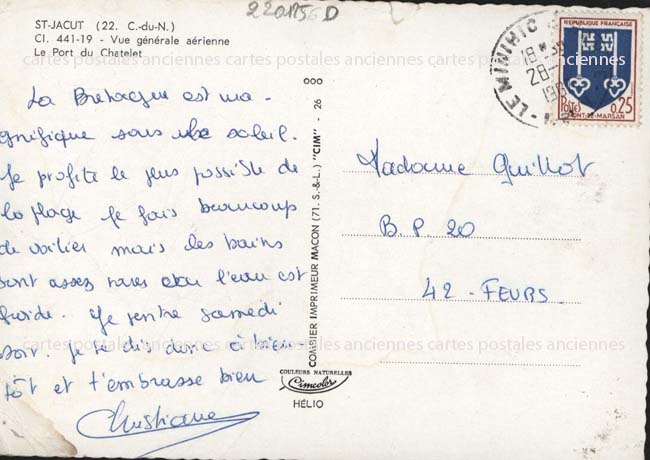 220156 D
ST-JACUT (22. C.-du-N.)
CI. 441-19 - Vue générale aérienne
Le Port du Chatelet
cartes postales anciennes cartes postales anciennes cartes postales anciennes
La Bretagne est ma-
gnifique sous le soleil.
Je profite le plus possible de
la plage Je fais beaucoup
de voilier mais les bains
sont assez rares car l'eau est
froide. Je rentre samedi
soir. Je te dis donc à bien-
tôt et t'embrasse bien
Christiane
ooo
COMBIER IMPRIMEUR MACON (71. S.-&-L.) "CIM" - 26
COULEURS NATURELLES
Cimcolor
HÉLIO
LE MINIHIC
18 H 30
28
REPUBLIQUE FRANÇAISE
POSTES
0,25
MONT-DE-MARSAN
Madame Guillot
B.P. 20
42 - FEURS
cartes postales anciennes cartes postales anciennes cartes postales anciennes